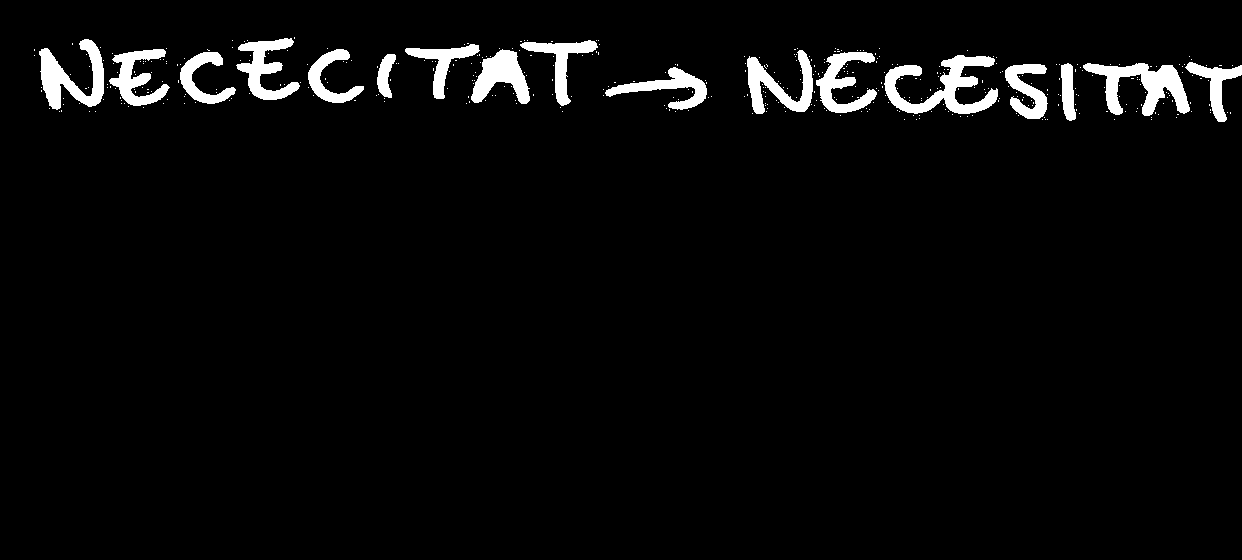 NECECITAT → NECESITAT